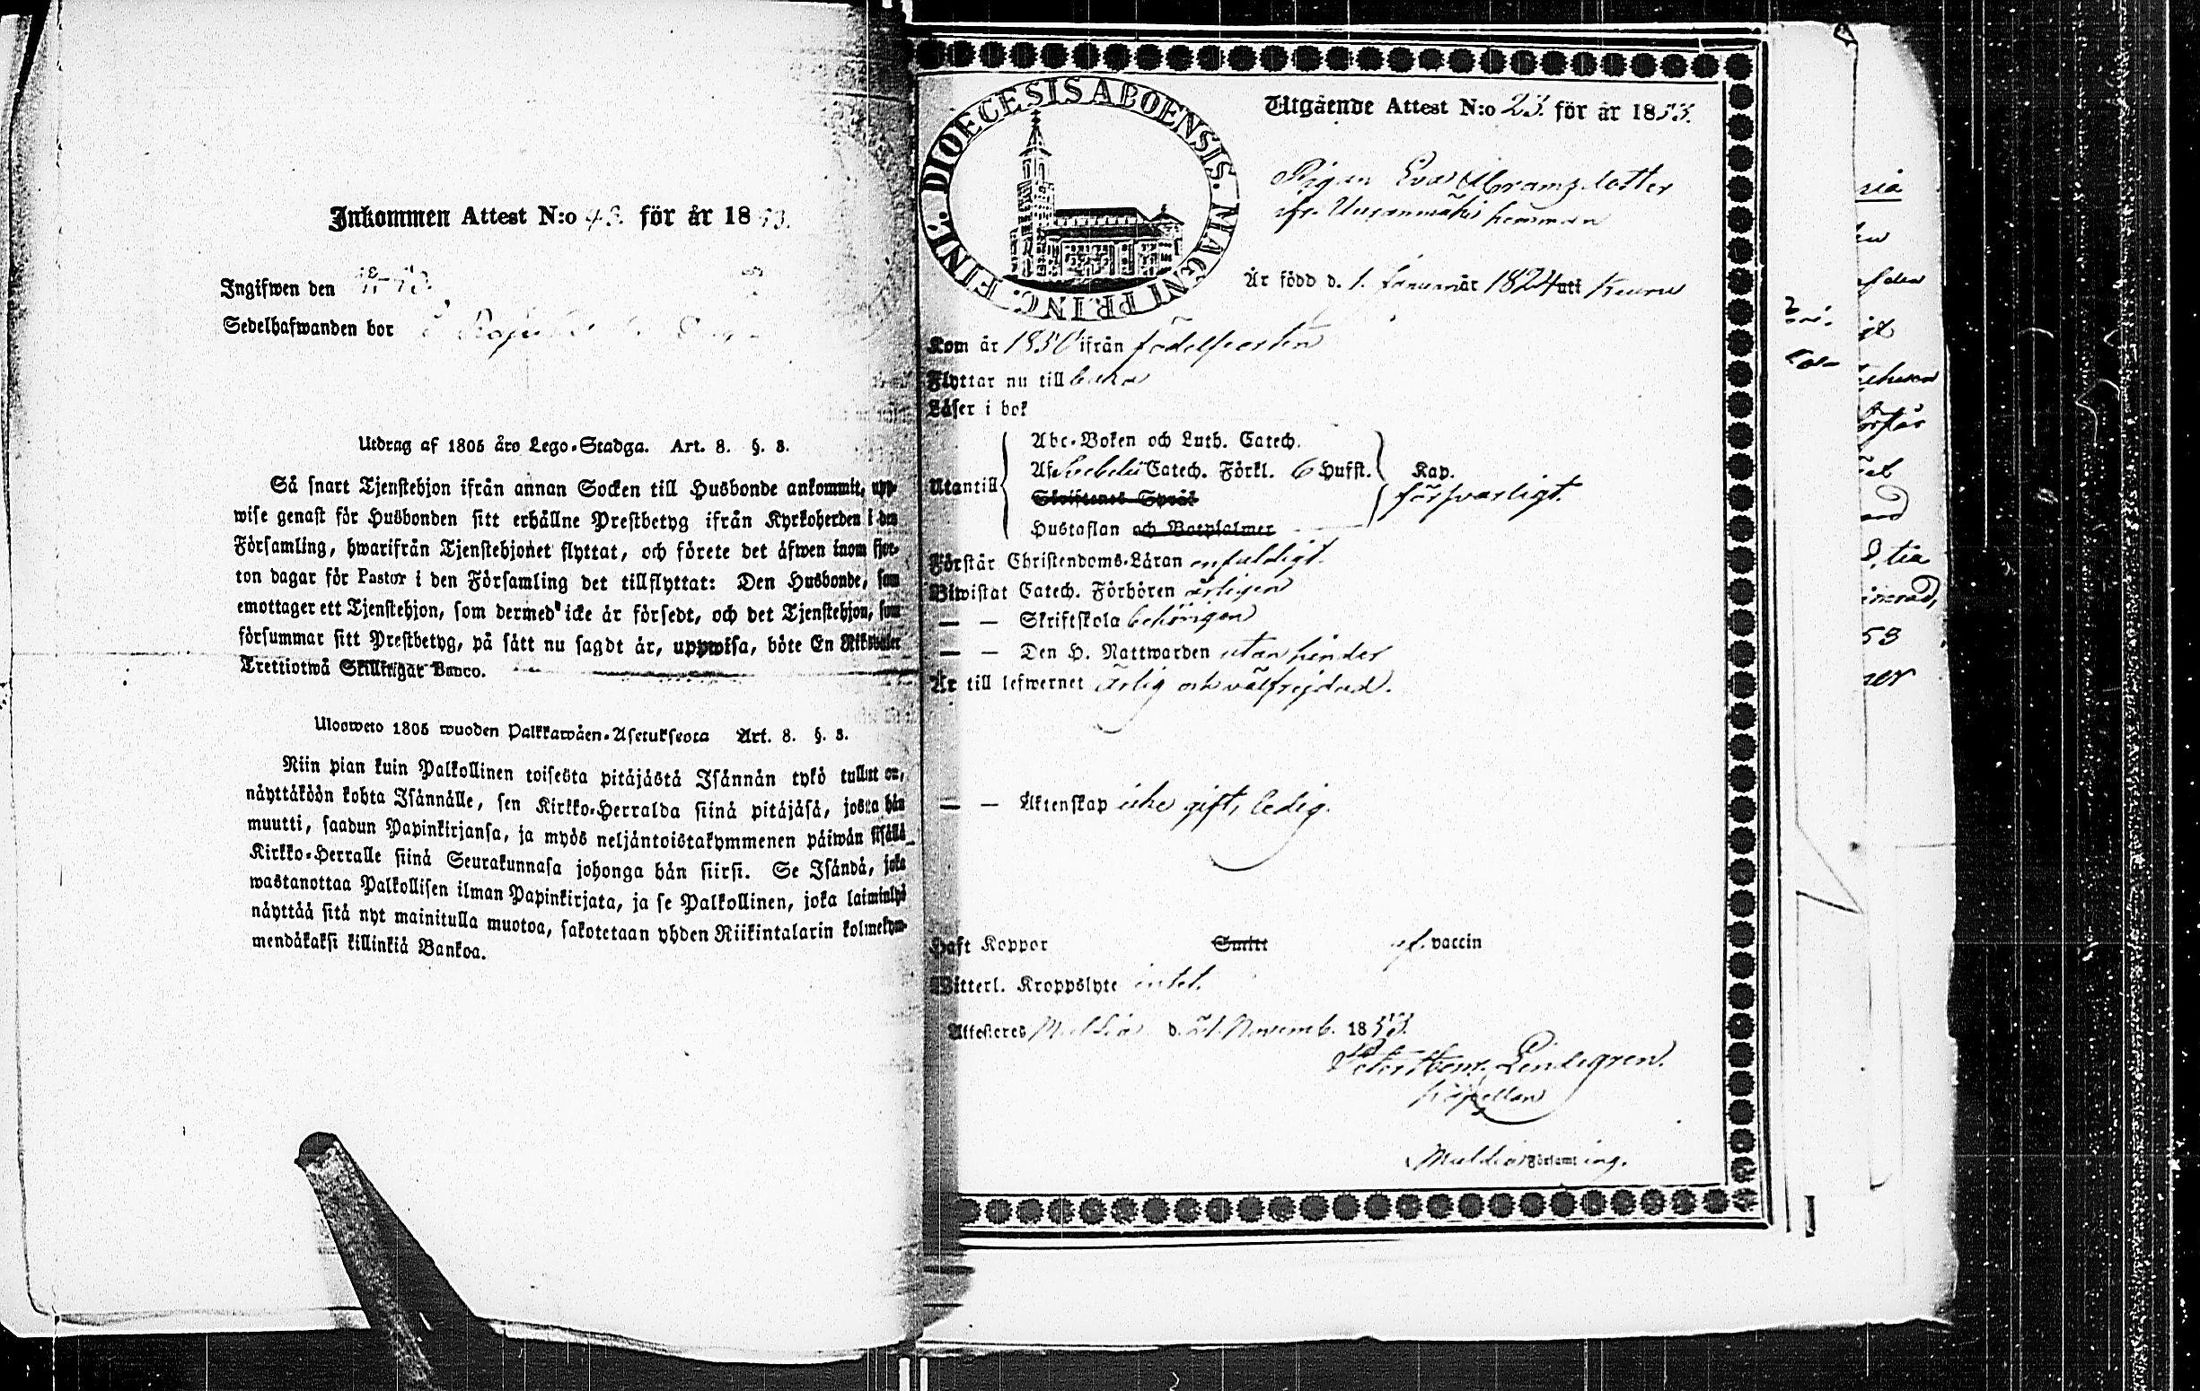 Inkommen Attest N:o 43. för år 1853.
Ingifwen den
Sedelhafwanden bor
Utdrag af 1805 års Lego-Stadga. Art. 8. §. 3.
Så snart Tjenstehjon ifrån annan Socken till Husbonde ankommit, upp-
wise genast för Husbonden sitt erhållne Prestbetyg ifrån Kyrkoherden i den
Församling, hwarifrån Tjenstehjonet flyttat, och förete det äfwen inom fjor-
ton dagar för Pastor i den Församling det tillflyttat: Den Husbonde, som
emottager ett Tjenstehjon, som dermed icke är försedt, och det Tjenstehjon, som
försummar sitt Prestbetyg, på sätt nu sagdt är, uppwisa, böte En Riksdaler
Trettiotwå Skillingar Banco.
Ulosweto 1805 wuoden Palkkawäen-Asetuksesta Art. 8. §. 3.
Niin pian kuin Palkollinen toisesta pitäjästä Isännän tykö tullut on,
näyttäköön kohta Isännälle, sen Kirkko-Herralda siinä pitäjäsä, josta hän
muutti, saadun Papinkirjansa, ja myös neljäntoistakymmenen päiwän sisällä
Kirkko-Herralle siinä Seurakunnasa johonga hän siirsi. Se Isändä, joka
wastanottaa Palkollisen ilman Papinkirjata, ja se Palkollinen, joka laiminlyö
näyttää sitä nyt mainitulla muotoa, sakotetaan yhden Riikintalarin kolmekym-
mendäkaksi killinkiä Bankoa.
DIOECESIS ABOENSIS. MAGNI PRINC. FINL.
Utgående Attest N:o 23. för år 1853.
Pigan Eva Abramsdotter
hemman
Är född d. 1. Januari år 1824 uti Keuru
Kom år 1850 ifrån födelseorten
Flyttar nu till baka
Läser i bok
Utantill
Abc-Boken och Luth. Catech.
Af Svebelii Catech. Förkl. 6 Hufst. Kap.
Skriftenes Språk försvarligt.
Hustaflan och Botpsalmer
Förstår Christendoms-Läran enfaldigt.
Biwistat Catech. Förhören årligen
— — Skriftskola behörigen
— — Den H. Nattwarden utan hinder
Är till lefwernet ärlig och välfrejdad.
— — Äktenskap icke gift, ledig.
Haft Koppor Smitt af vaccin
Witterl. Kroppslyte intet.
Attesteres Multia d. 21. Novemb. 1853.
Peter Henr. Lindegren.
Kapellan
Multia Församling.